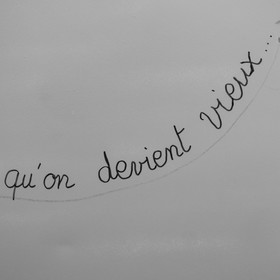 qu'on devient vieux...